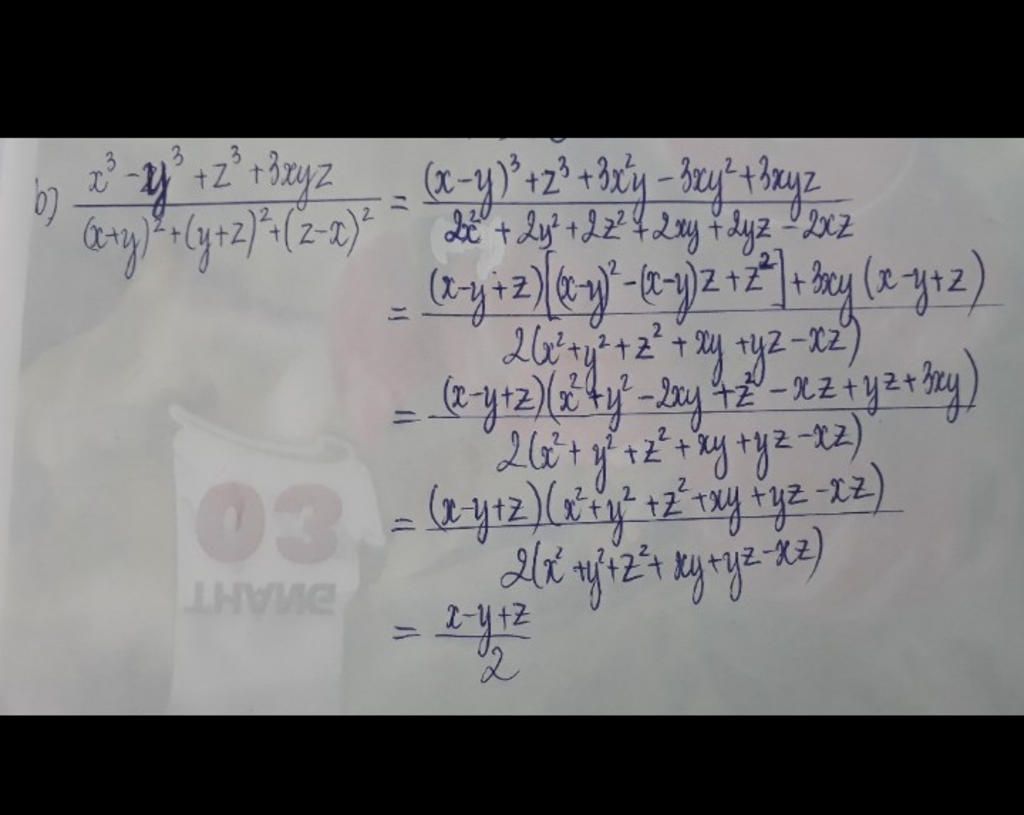 b) (x³ - y³ + z³ + 3xyz)/((x+y)² + (y+z)² + (z-x)²) = ((x-y)³ + z³ + 3x²y - 3xy² + 3xyz)/(2x² + 2y² + 2z² + 2xy + 2yz - 2xz)
= ((x-y+z)[(x-y)² - (x-y)z + z²] + 3xy(x-y+z))/(2(x² + y² + z² + xy + yz - xz))
= ((x-y+z)(x² + y² - 2xy + z² - xz + yz + 3xy))/(2(x² + y² + z² + xy + yz - xz))
= ((x-y+z)(x² + y² + z² + xy + yz - xz))/(2(x² + y² + z² + xy + yz - xz))
= (x-y+z)/2
03
THÁNG